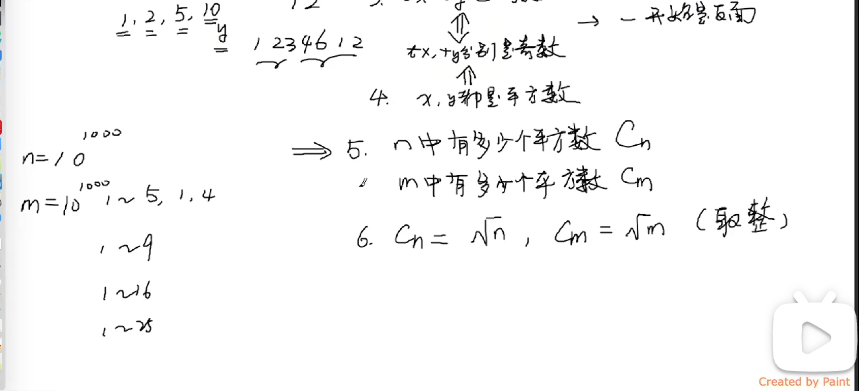 1, 2, 5, 10
y
1 2 3 4 6 1 2
→ 一开始是反面
tx, ty分别是奇数
4. x, y都是平方数
n=10^1000
m=10^1000
1~5, 1, 4
1~9
1~16
1~25
⇒ 5. n中有多少个平方数 Cn
m中有多少个平方数 Cm
6. Cn = √n, Cm = √m (取整)
Created by Paint